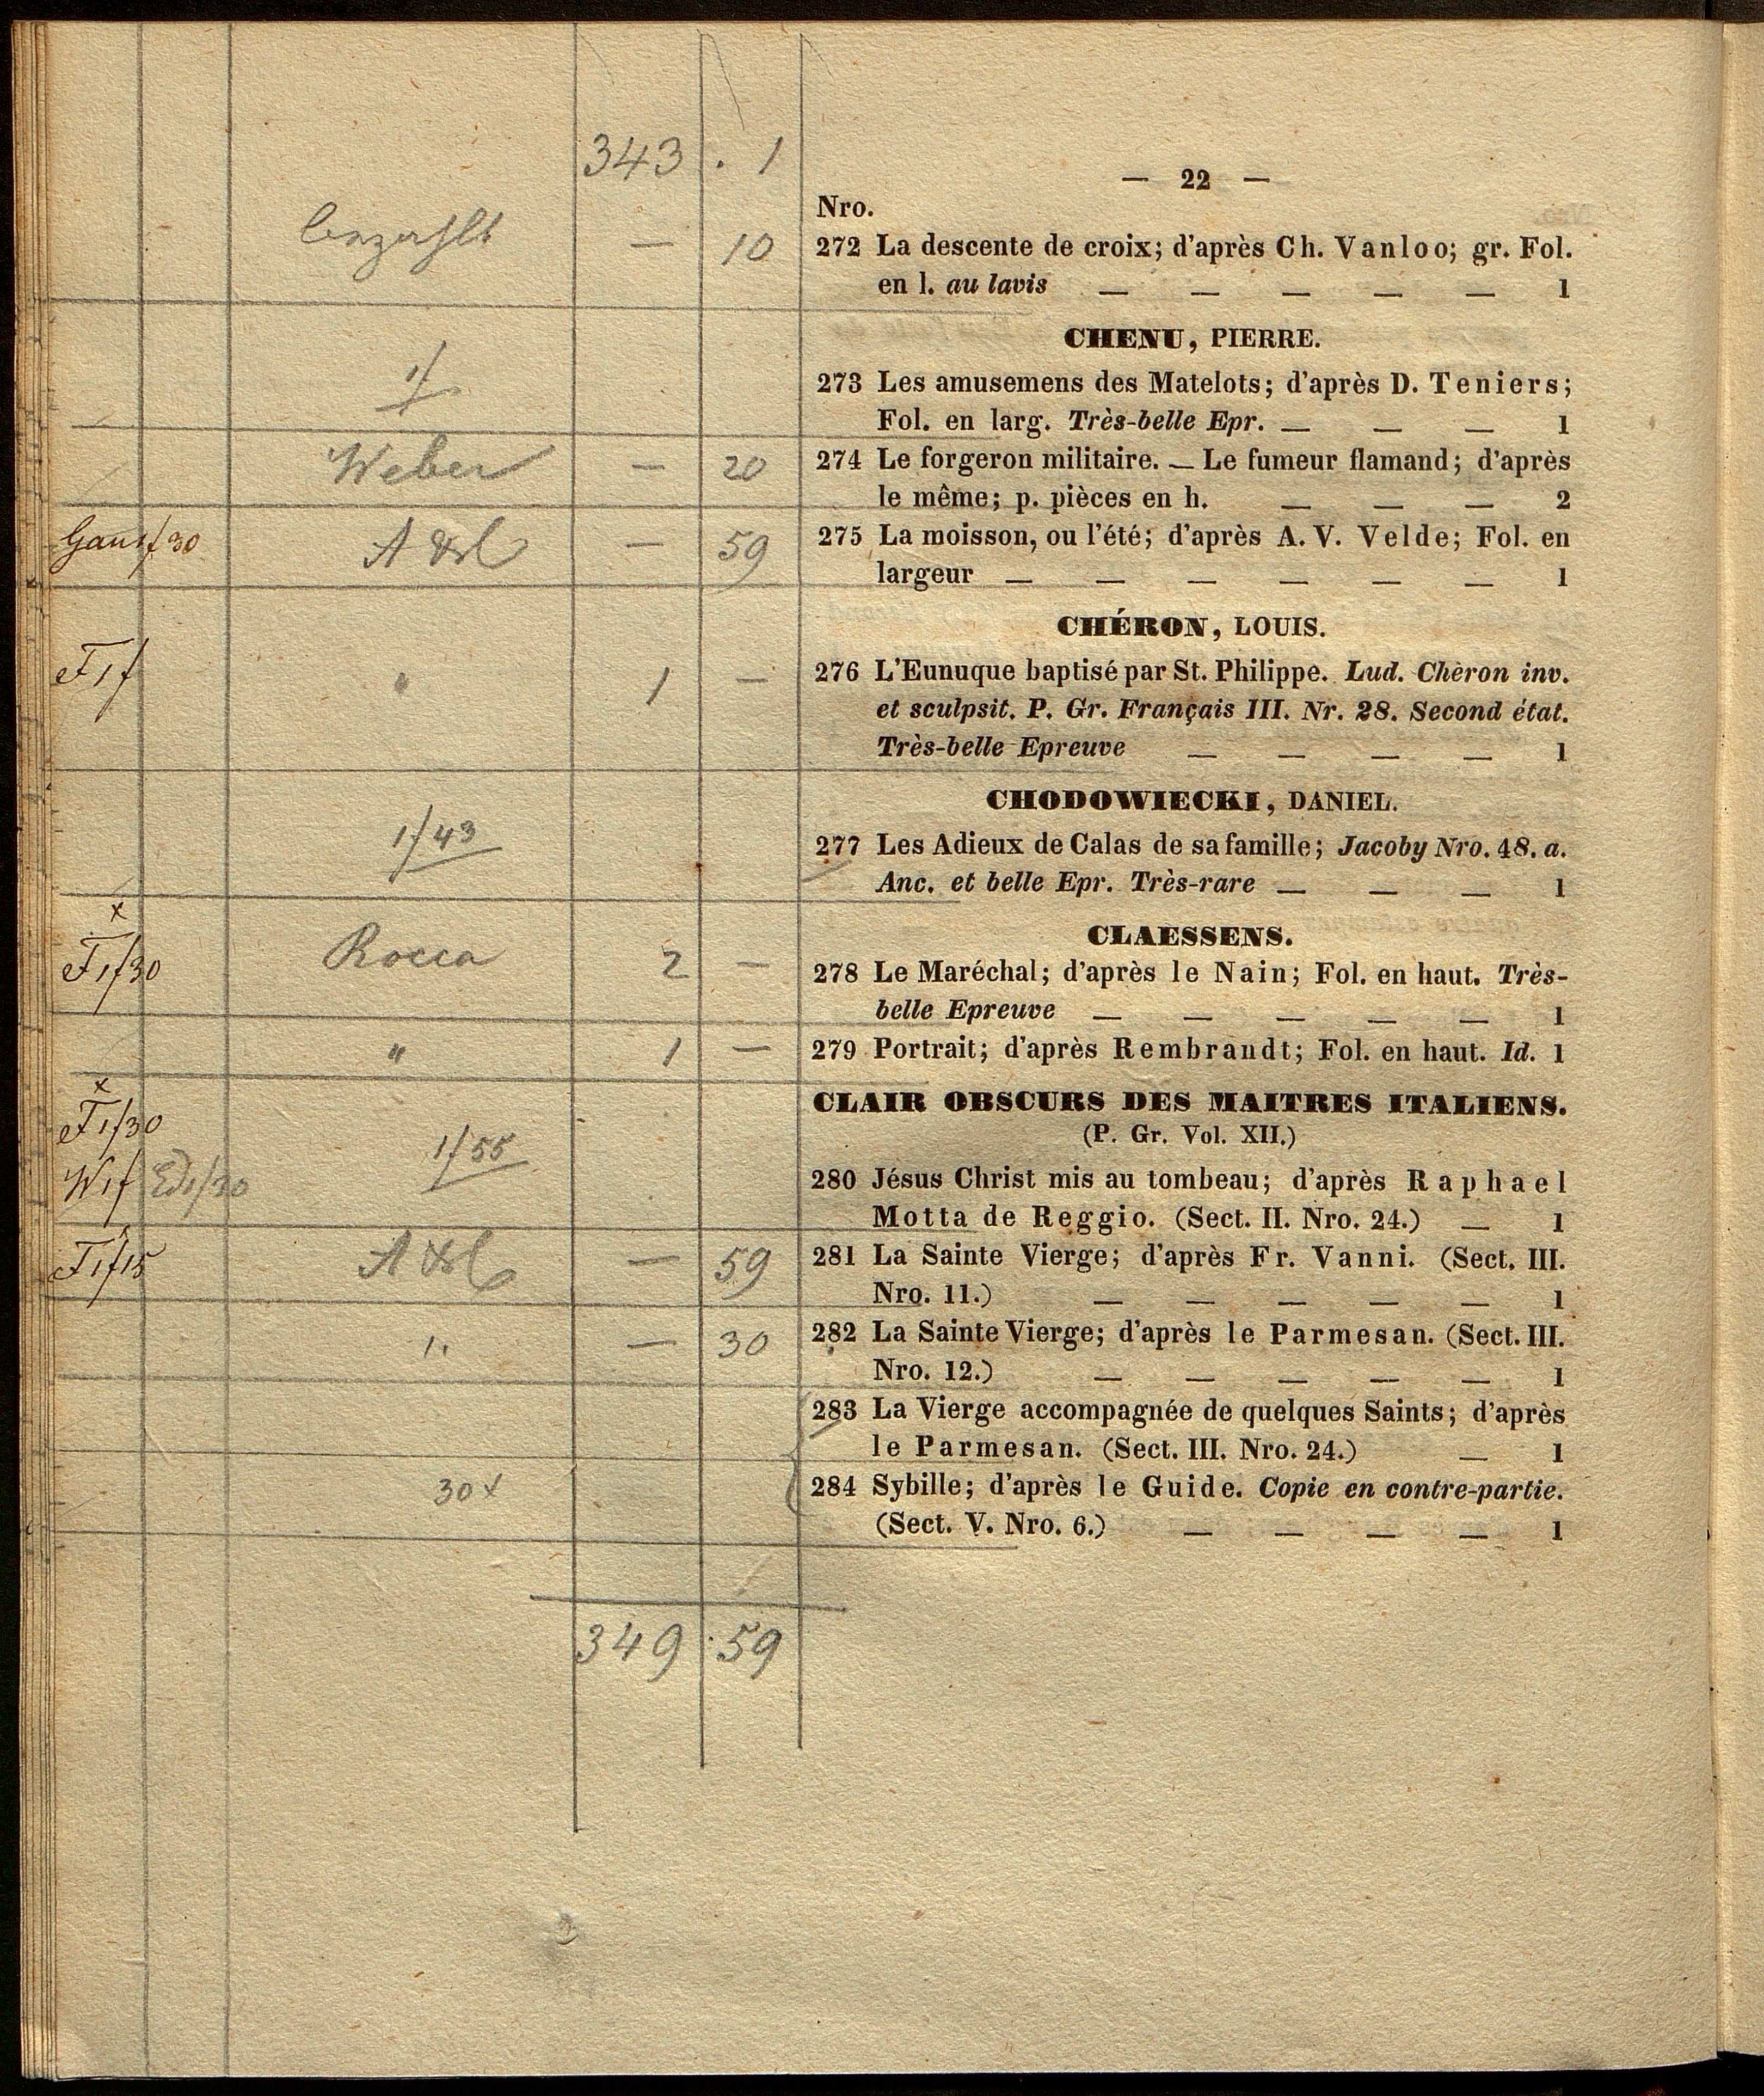 343 . 1
— 22 —
Nro.
bezahlt — 10 272 La descente de croix; d'après Ch. Vanloo; gr. Fol.
en l. au lavis — — — — — 1
CHENU, PIERRE.
1f 273 Les amusemens des Matelots; d'après D. Teniers;
Fol. en larg. Très-belle Epr. — — — 1
Weber — 20 274 Le forgeron militaire. — Le fumeur flamand; d'après
le même; p. pièces en h. — — — 2
59 275 La moisson, ou l'été; d'après A. V. Velde; Fol. en
largeur — — — — — — 1
CHÉRON, LOUIS.
1f " 1 — 276 L'Eunuque baptisé par St. Philippe. Lud. Chèron inv.
et sculpsit. P. Gr. Français III. Nr. 28. Second état.
Très-belle Epreuve — — — — 1
CHODOWIECKI, DANIEL.
1f43 277 Les Adieux de Calas de sa famille; Jacoby Nro. 48. a.
Anc. et belle Epr. Très-rare — — — 1
CLAESSENS.
1f30 Rocca 2 — 278 Le Maréchal; d'après le Nain; Fol. en haut. Très-
belle Epreuve — — — — — 1
" 1 — 279 Portrait; d'après Rembrandt; Fol. en haut. Id. 1
CLAIR OBSCURS DES MAITRES ITALIENS.
1f30 (P. Gr. Vol. XII.)
W1f 1f30 1f55 280 Jésus Christ mis au tombeau; d'après Raphael
Motta de Reggio. (Sect. II. Nro. 24.) — 1
1f15 — 59 281 La Sainte Vierge; d'après Fr. Vanni. (Sect. III.
Nro. 11.) — — — — — 1
— 30 282 La Sainte Vierge; d'après le Parmesan. (Sect. III.
Nro. 12.) — — — — — 1
283 La Vierge accompagnée de quelques Saints; d'après
le Parmesan. (Sect. III. Nro. 24.) — 1
30x 284 Sybille; d'après le Guide. Copie en contre-partie.
(Sect. V. Nro. 6.) — — — — 1
349 . 59